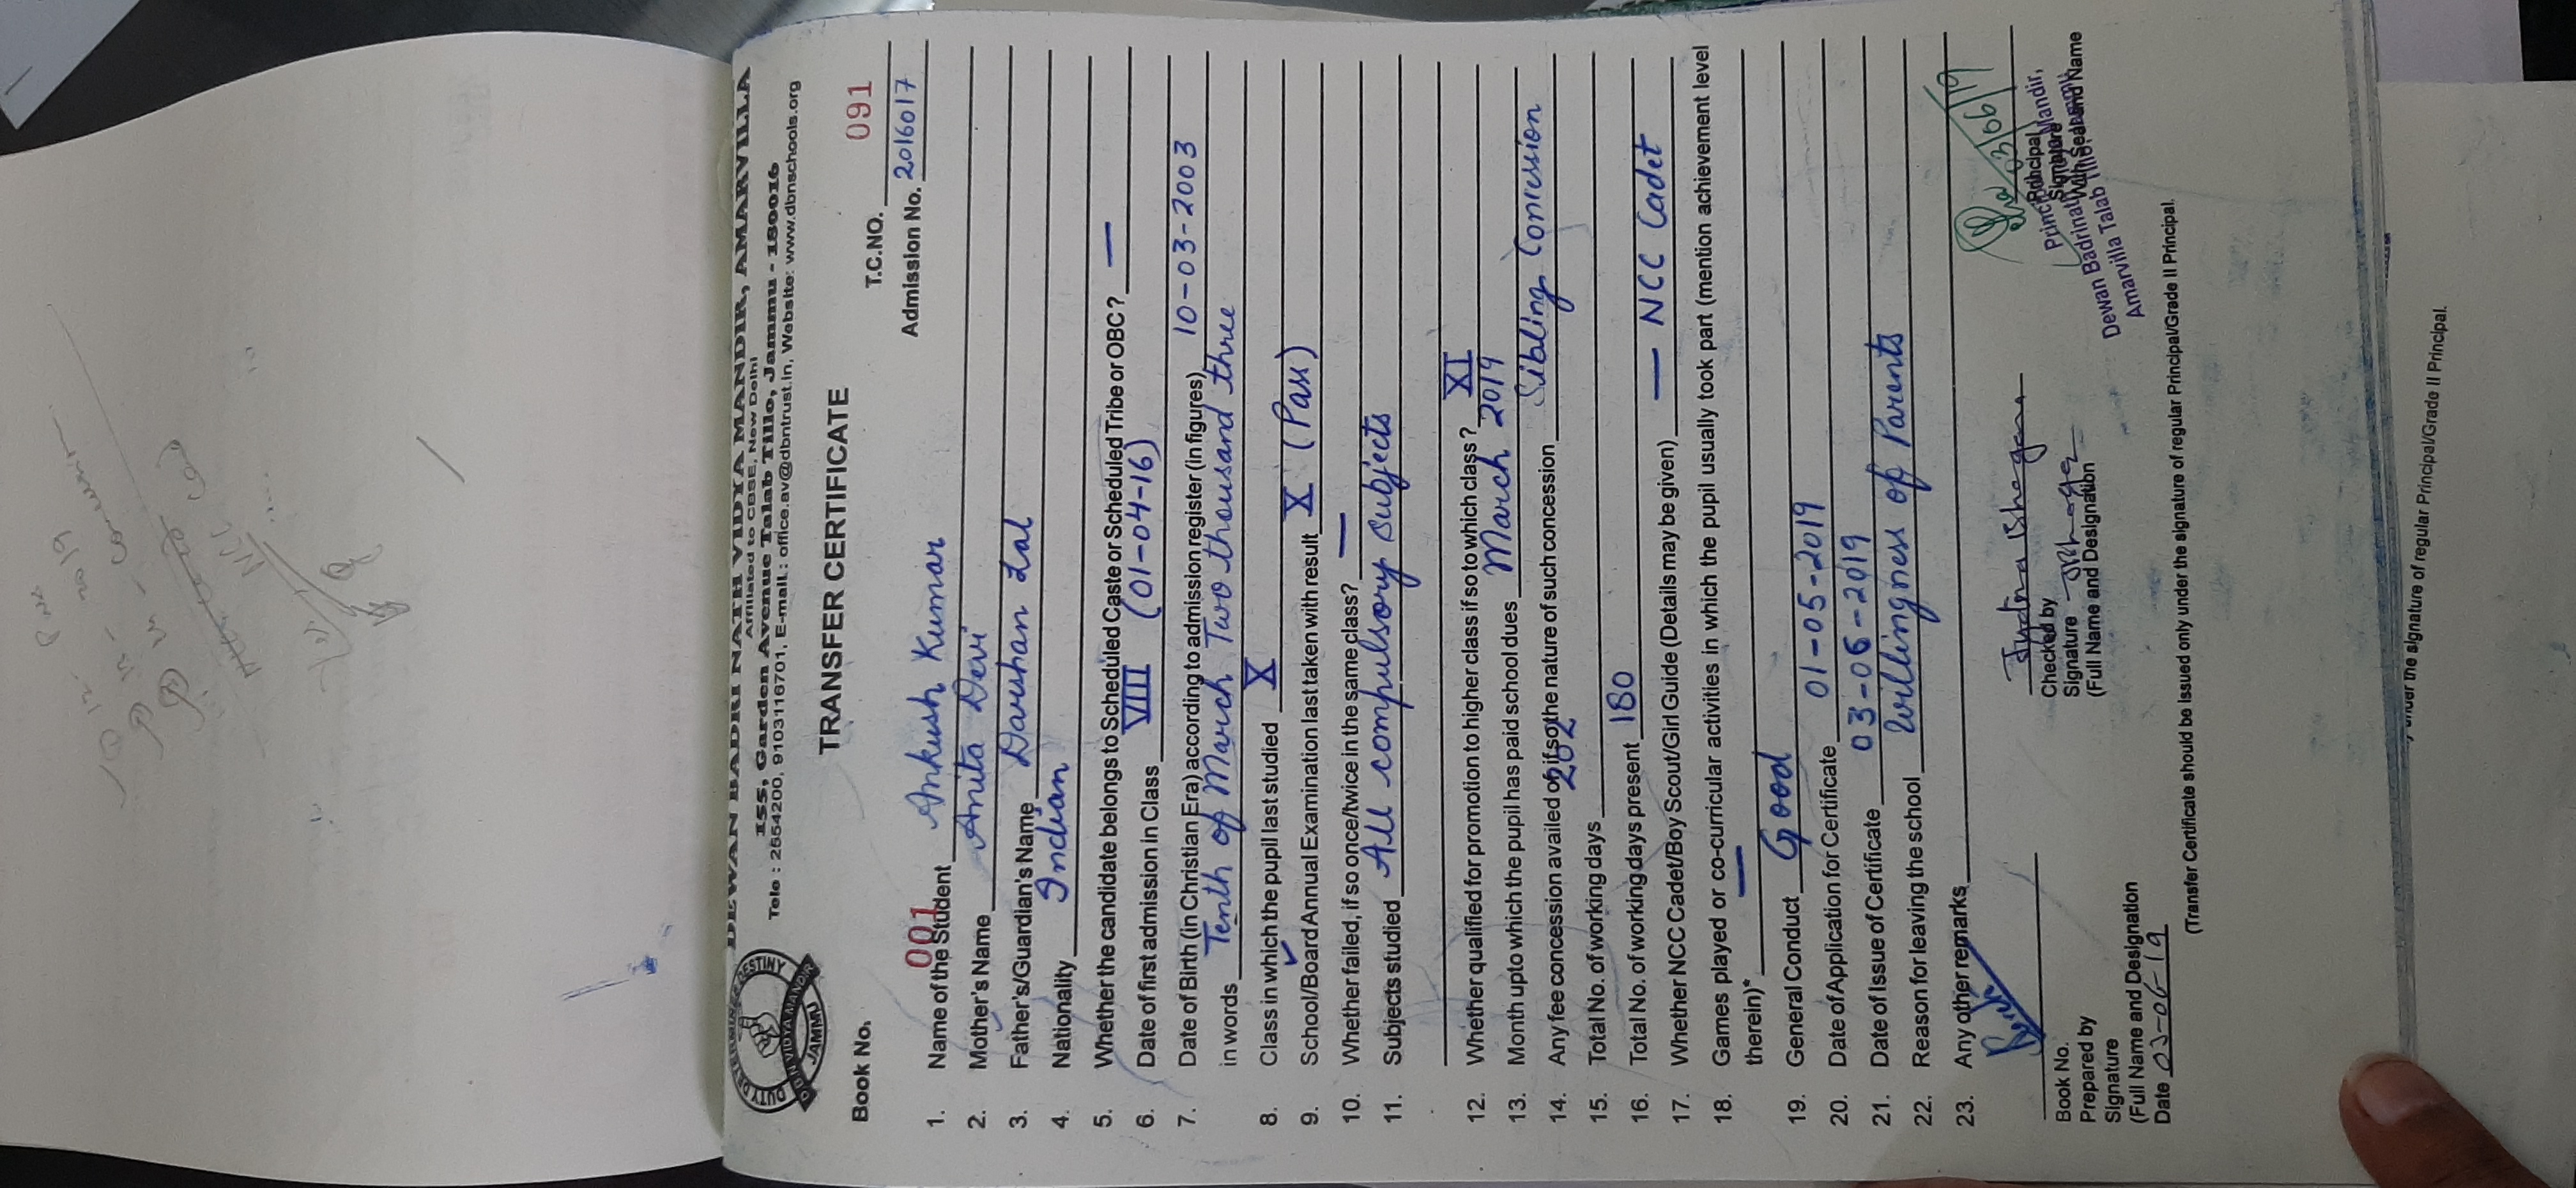 DEWAN BADRI NATH VIDYA MANDIR, AMARVILLA
Affiliated to CBSE, New Delhi
155, Garden Avenue Talab Tillo, Jammu - 180016
Tele : 2554200, 9103116701, E-mail : office.av@dbntrust.in, Website: www.dbnschools.org
DUTY DETERMINES DESTINY
JAMMU
TRANSFER CERTIFICATE
Book No. 001
T.C.NO. 091
Admission No. 2016017
1. Name of the Student Ankush Kumar
2. Mother's Name Anita Devi
3. Father's/Guardian's Name Darshan Lal
4. Nationality Indian
5. Whether the candidate belongs to Scheduled Caste or Scheduled Tribe or OBC? —
6. Date of first admission in Class VIII (01-04-16)
7. Date of Birth (in Christian Era) according to admission register (in figures) 10-03-2003
in words Tenth of March Two thousand three
8. Class in which the pupil last studied X
9. School/Board Annual Examination last taken with result X (Pass)
10. Whether failed, if so once/twice in the same class? —
11. Subjects studied All compulsory subjects
12. Whether qualified for promotion to higher class if so to which class? XI
13. Month upto which the pupil has paid school dues March 2019
14. Any fee concession availed of if so the nature of such concession Sibling Concession
15. Total No. of working days 202
16. Total No. of working days present 180
17. Whether NCC Cadet/Boy Scout/Girl Guide (Details may be given) — NCC Cadet
18. Games played or co-curricular activities in which the pupil usually took part (mention achievement level
therein)* —
19. General Conduct Good
20. Date of Application for Certificate 01-05-2019
21. Date of Issue of Certificate 03-06-2019
22. Reason for leaving the school Willingness of Parents
23. Any other remarks
03/06/19
Book No.
Prepared by
Signature
(Full Name and Designation
Date 03-06-19
Checked by
Signature
(Full Name and Designation
Principal
Signature
With Seal and Name
Principal
Dewan Badrinath Vidya Mandir,
Amarvilla Talab Tillo, Jammu
(Transfer Certificate should be issued only under the signature of regular Principal/Grade II Principal.
under the signature of regular Principal/Grade II Principal.